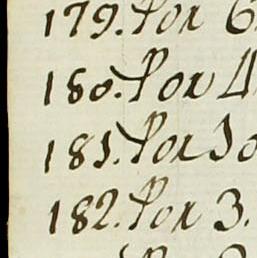 179. Por 6
180. Por 4
181. Por 10
182. Por 3.